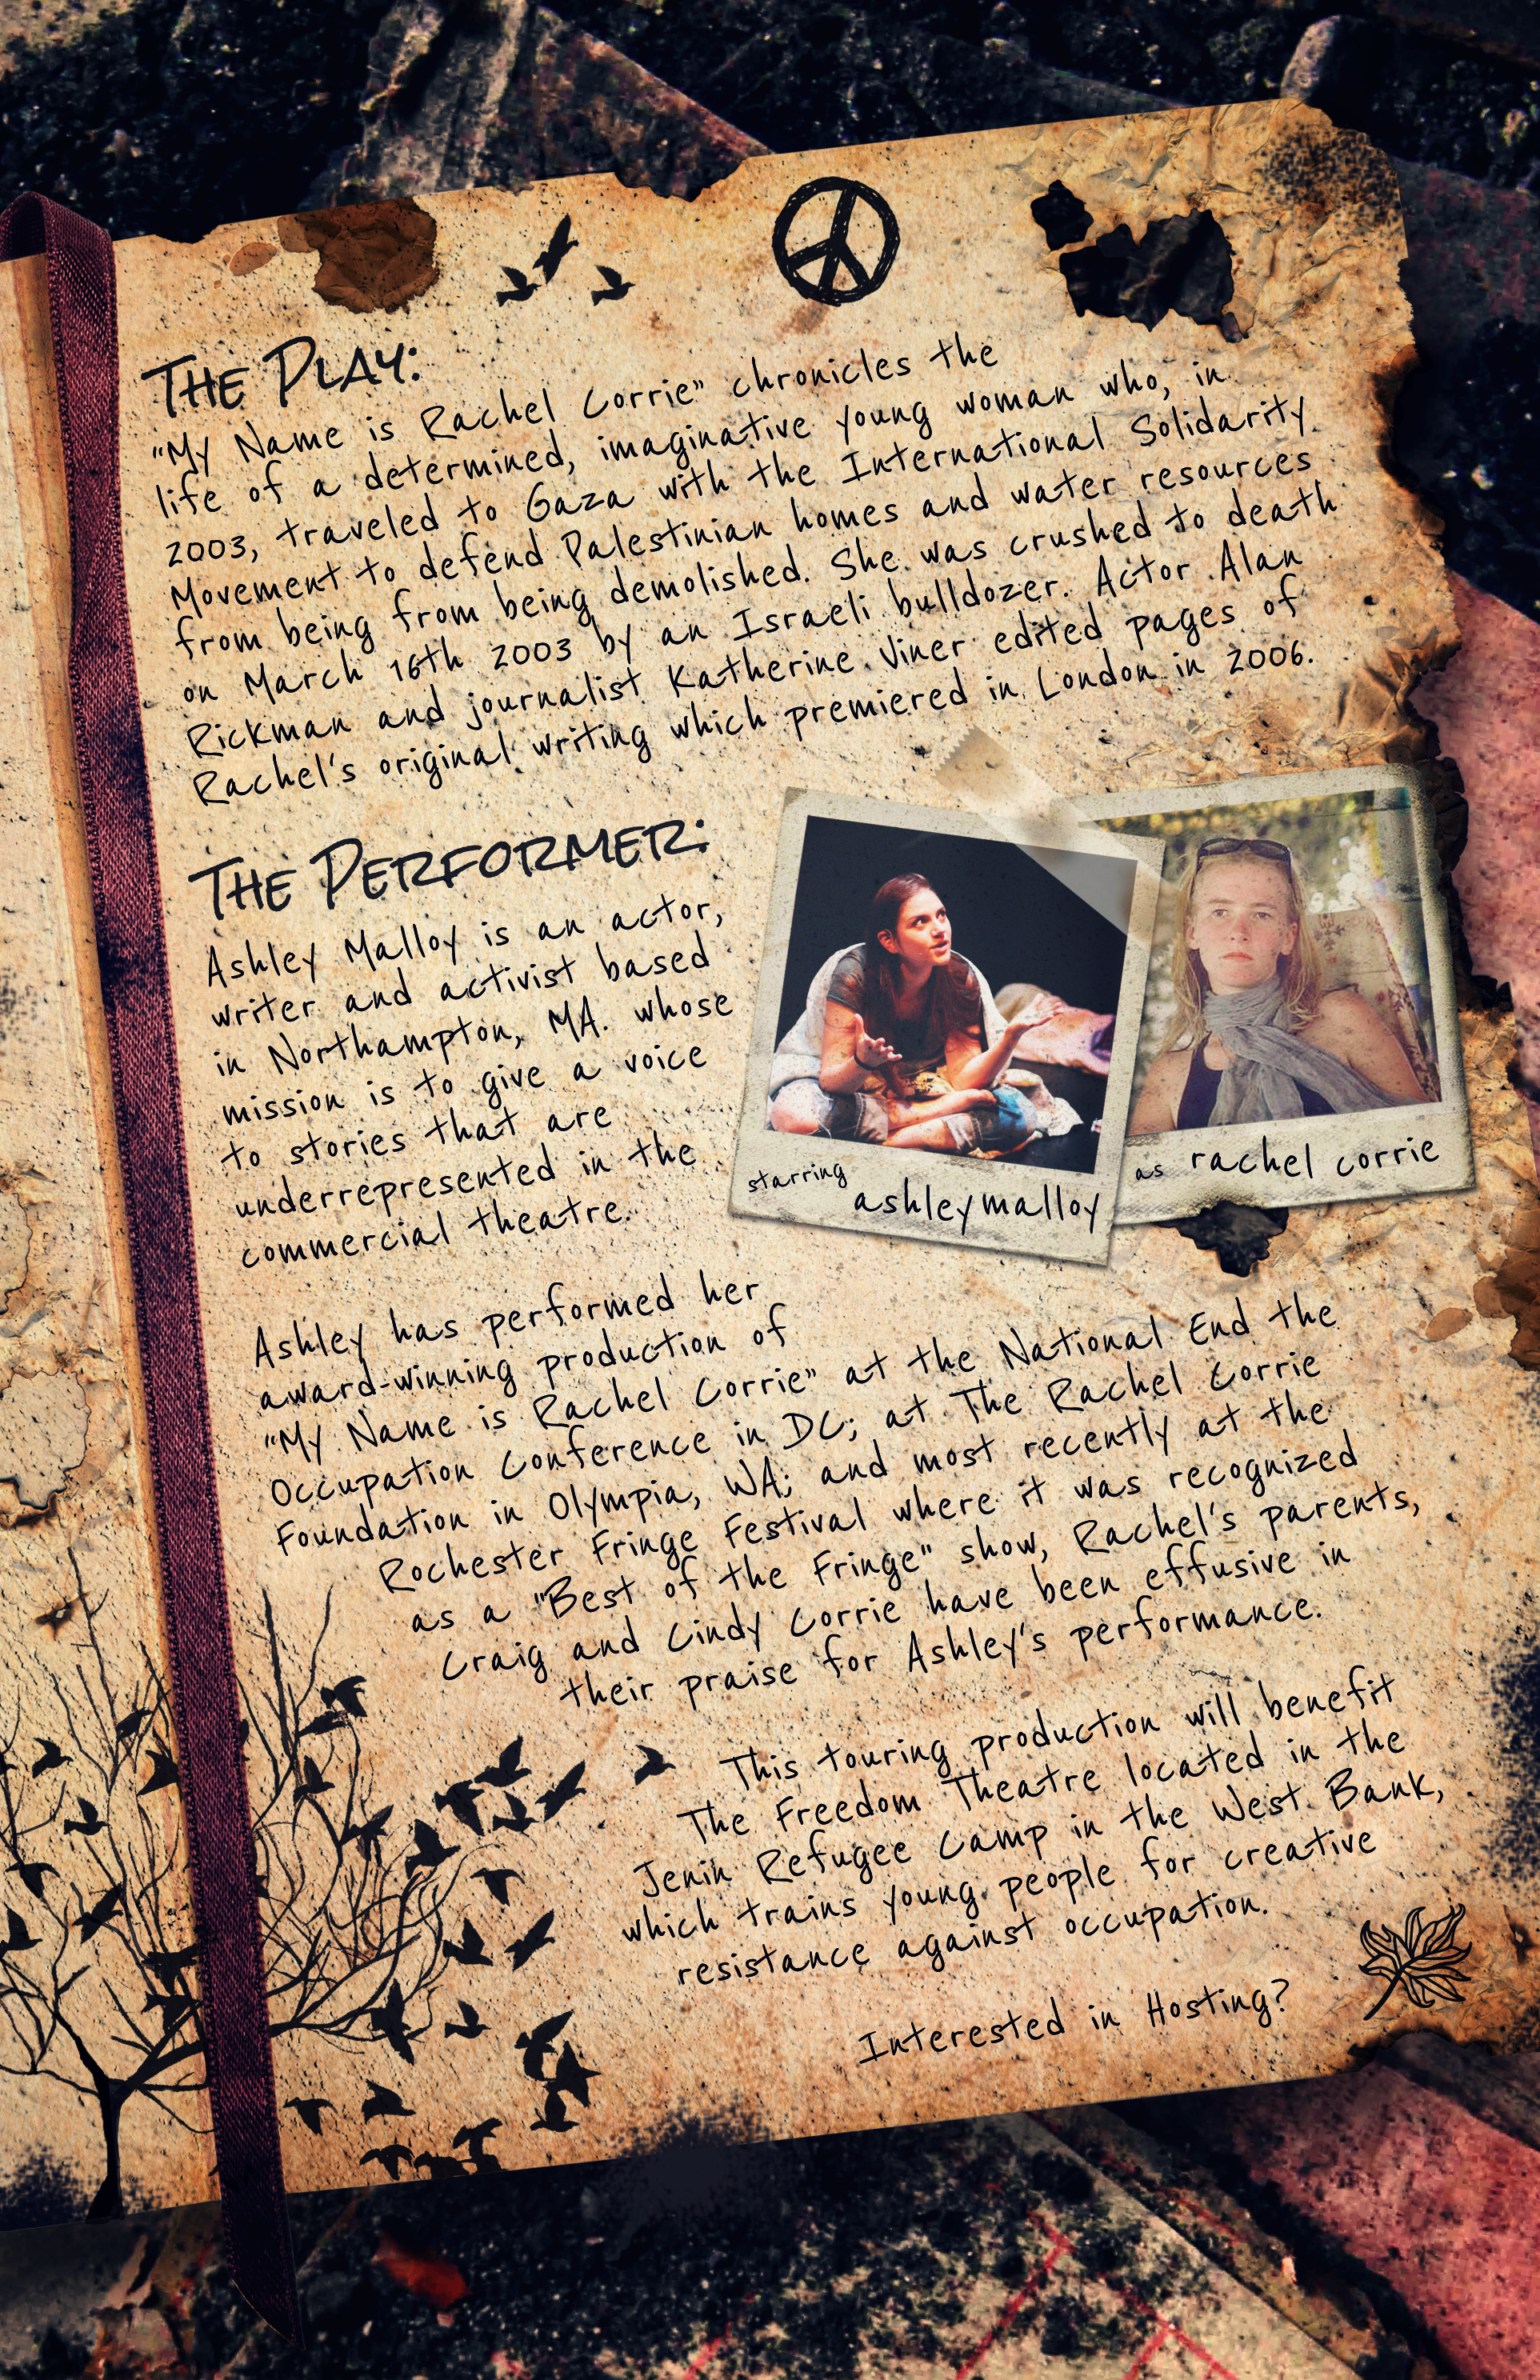 The Play:
"My Name is Rachel Corrie" chronicles the
life of a determined, imaginative young woman who, in
2003, traveled to Gaza with the International Solidarity
Movement to defend Palestinian homes and water resources
from being from being demolished. She was crushed to death
on March 16th 2003 by an Israeli bulldozer. Actor Alan
Rickman and journalist Katherine Viner edited pages of
Rachel's original writing which premiered in London in 2006.
The Performer:
Ashley Malloy is an actor,
writer and activist based
in Northampton, MA. whose
mission is to give a voice
to stories that are
underrepresented in the
commercial theatre.
starring
ashley malloy
as rachel corrie
Ashley has performed her
award-winning production of
"My Name is Rachel Corrie" at the National End the
Occupation Conference in DC; at The Rachel Corrie
Foundation in Olympia, WA; and most recently at the
Rochester Fringe Festival where it was recognized
as a "Best of the Fringe" show, Rachel's parents,
Craig and Cindy Corrie have been effusive in
their praise for Ashley's performance.
This touring production will benefit
The Freedom Theatre located in the
Jenin Refugee Camp in the West Bank,
which trains young people for creative
resistance against occupation.
Interested in Hosting?